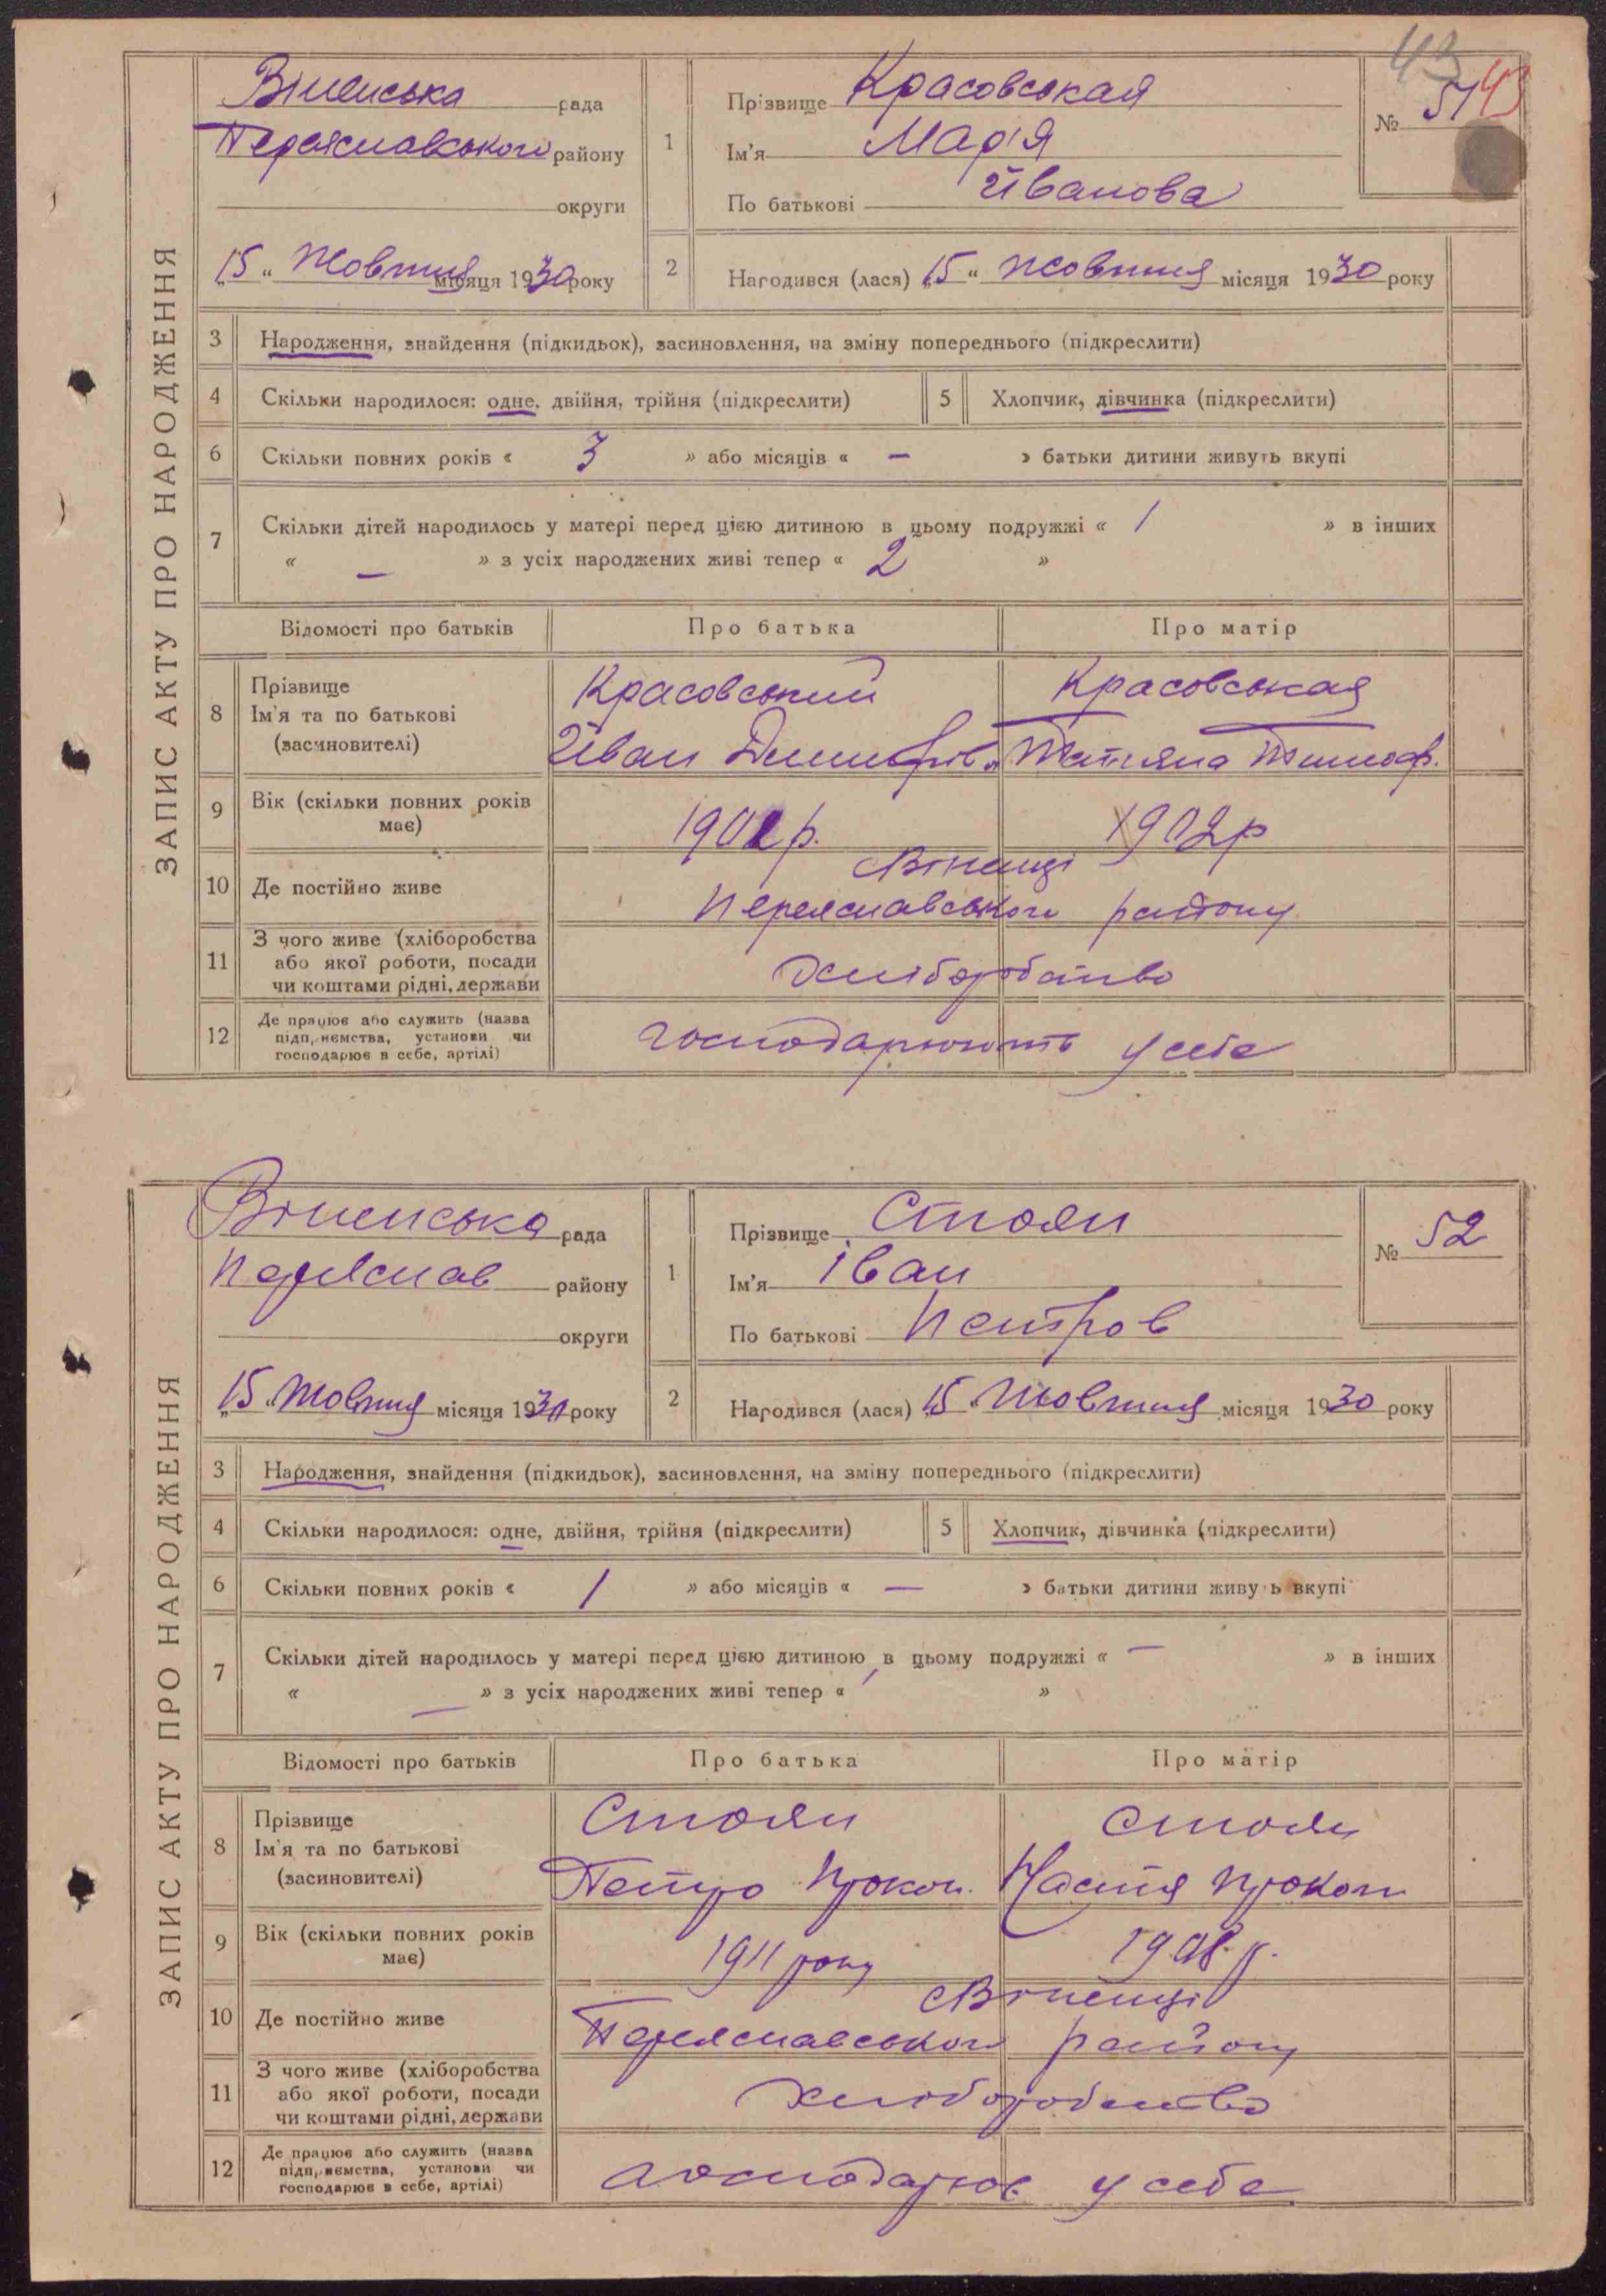 ЗАПИС АКТУ ПРО НАРОДЖЕННЯ
43
Віненська рада
Переяславського району
округи
15 „ Жовтня місяця 1930 року
1
Прізвище Красовская
Ім'я Марія
По батькові Иванова
№ 51 43
2
Народився (лася) „15 „ Жовтня місяця 1930 року
3 Народження, знайдення (підкидьок), засиновлення, на зміну попереднього (підкреслити)
4 Скільки народилося: одне, двійня, трійня (підкреслити) 5 Хлопчик, дівчинка (підкреслити)
6 Скільки повних років « 3 » або місяців « — » батьки дитини живуть вкупі
7 Скільки дітей народилось у матері перед цією дитиною в цьому подружжі « 1 » в інших
« — » з усіх народжених живі тепер « 2 »
Відомості про батьків Про батька Про матір
8 Прізвище
Ім'я та по батькові
(засиновителі)
Красовський Красовская
Иван Дмитрів. Татияна Тимоф.
9 Вік (скільки повних років має)
190 р. 1902р
10 Де постійно живе
с Віненці
Переяславського району
11 З чого живе (хліборобства
або якої роботи, посади
чи коштами рідні, держави
Хліборобство
12 Де працює або служить (назва
підприємства, установи чи
господарює в себе, артілі)
господарюють у себе
ЗАПИС АКТУ ПРО НАРОДЖЕННЯ
Віненська рада
Переяслав району
округи
„15 „ Жовтня місяця 1930 року
1
Прізвище Стоян
Ім'я Іван
По батькові Петров
№ 52
2
Народився (лася) „15 „ Жовтня місяця 1930 року
3 Народження, знайдення (підкидьок), засиновлення, на зміну попереднього (підкреслити)
4 Скільки народилося: одне, двійня, трійня (підкреслити) 5 Хлопчик, дівчинка (підкреслити)
6 Скільки повних років « 1 » або місяців « — » батьки дитини живуть вкупі
7 Скільки дітей народилось у матері перед цією дитиною в цьому подружжі « — » в інших
« — » з усіх народжених живі тепер « ' »
Відомості про батьків Про батька Про матір
8 Прізвище
Ім'я та по батькові
(засиновителі)
Стоян Стоян
Петро Прокоп. Настя Прокоп
9 Вік (скільки повних років має)
1911 року 1908 р.
10 Де постійно живе
с Віненці
Переяславського району
11 З чого живе (хліборобства
або якої роботи, посади
чи коштами рідні, держави
Хліборобство
12 Де працює або служить (назва
підприємства, установи чи
господарює в себе, артілі)
господарює у себе